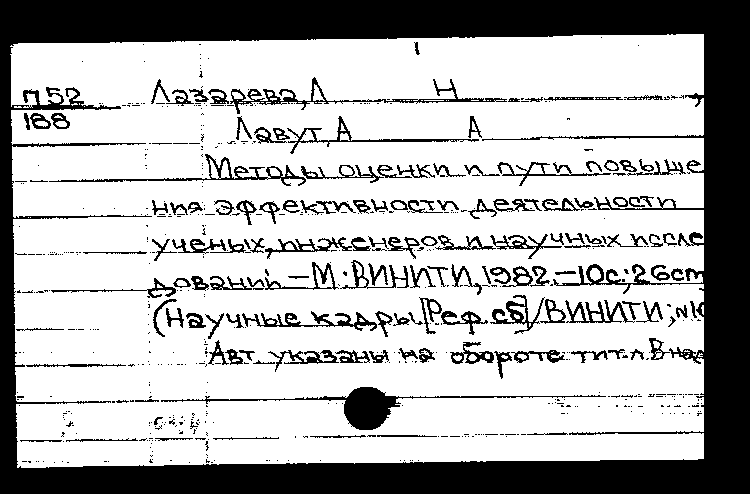 П52 Лазарева, Л Н,
188 Лавут, А А
Методы оценки и пути повыше
ния эффективности деятельности
ученых, инженеров и научных иссле
дований. — М. ВИНИТИ, 1982. — 10с.; 26cm
(Научные кадры [Реф. сб] / ВИНИТИ; №
Авт. указаны на обороте тит. л. В над